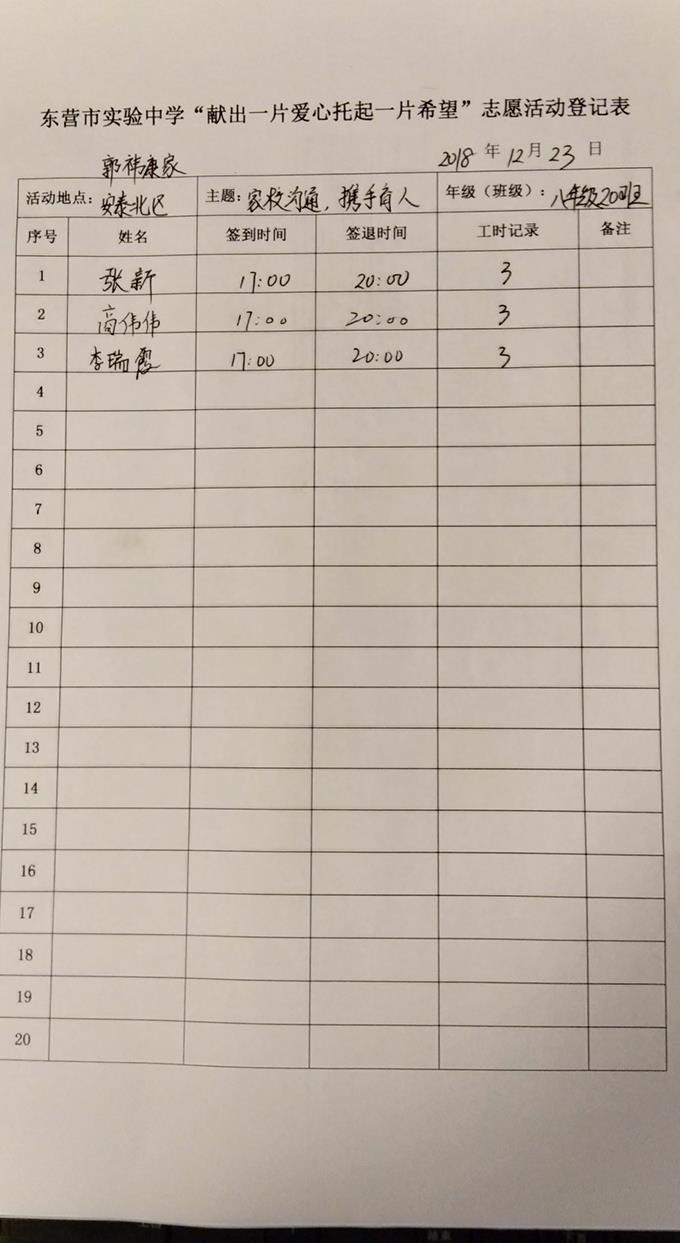 东营市实验中学“献出一片爱心托起一片希望”志愿活动登记表
郭祎康家 2018年12月23日
活动地点：安泰北区 主题：家校沟通，携手育人 年级（班级）：八年级20班
序号 姓名 签到时间 签退时间 工时记录 备注
1 张新 17:00 20:00 3
2 高伟伟 17:00 20:00 3
3 李瑞霞 17:00 20:00 3
4
5
6
7
8
9
10
11
12
13
14
15
16
17
18
19
20